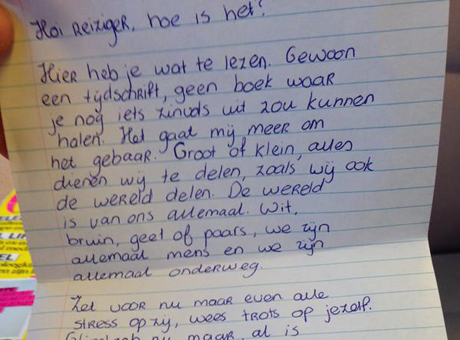 Hoi Reiziger, hoe is het?
Hier heb je wat te lezen. Gewoon
een tijdschrift, geen boek waar
je nog iets zinvols uit zou kunnen
halen. Het gaat mij meer om
het gebaar. Groot of klein, alles
dienen wij te delen, zoals wij ook
de wereld delen. De wereld
is van ons allemaal. Wit,
bruin, geel of paars, we zijn
allemaal mens en we zijn
allemaal onderweg.
Zet voor nu maar even alle
stress opzij, wees trots op jezelf.
Glimlach nu maar, al is